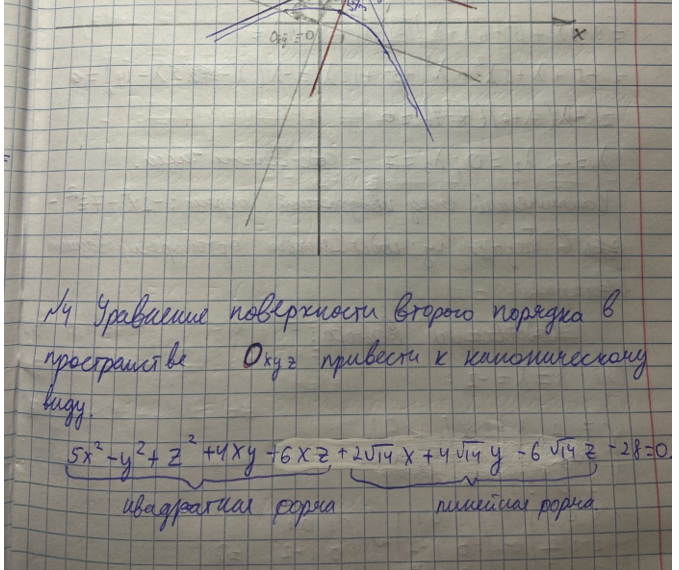 x
№4 Уравнение поверхности второго порядка в
пространстве Oxyz привести к каноническому
виду.
5x² - y² + z² + 4xy + 6xz + 2√14 x + 4√14 y - 6√14 z - 28 = 0.
квадратная форма линейная форма